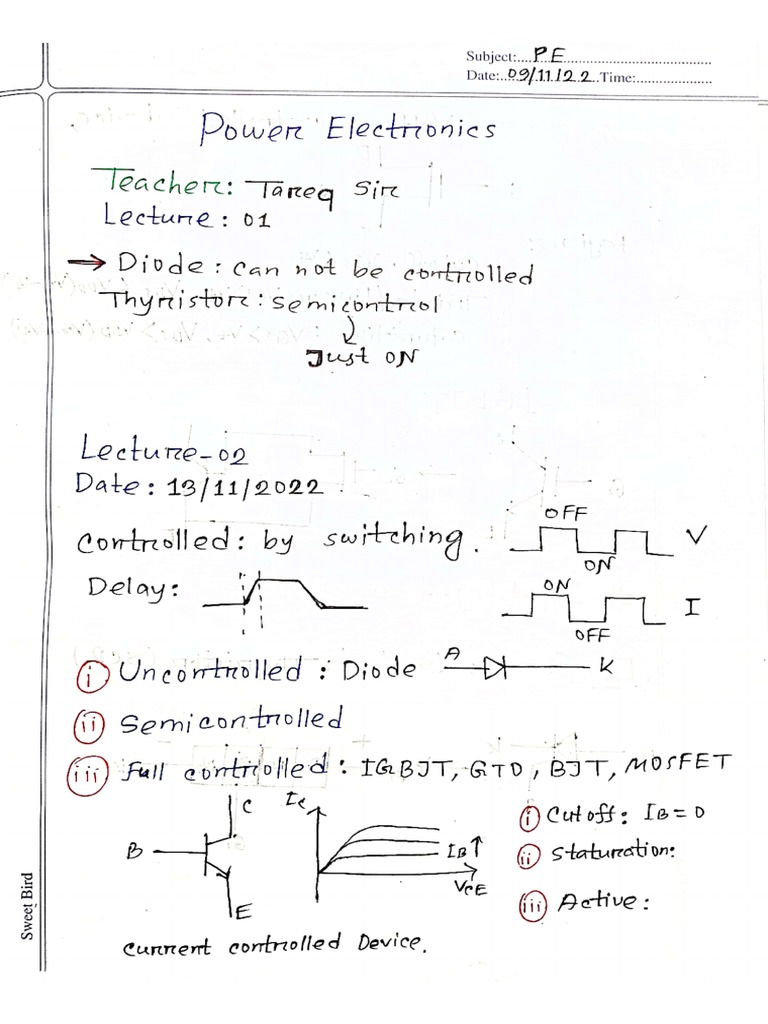 Subject:....PE
Date:..09/11/22..Time:
Power Electronics
Teacher: Tareq Sir
Lecture : 01
→ Diode : can not be controlled
Thyristor : semicontrol
Just ON
Lecture-02
Date : 13/11/2022
Controlled : by switching.
OFF
V
ON
Delay :
ON
I
OFF
i Uncontrolled : Diode A K
ii Semicontrolled
iii Full controlled : IGBJT, GTO, BJT, MOSFET
C
Ic
i Cutoff : IB = 0
B
IB↑
ii Staturation:
VCE
iii Active :
E
Current controlled Device.
Sweet Bird